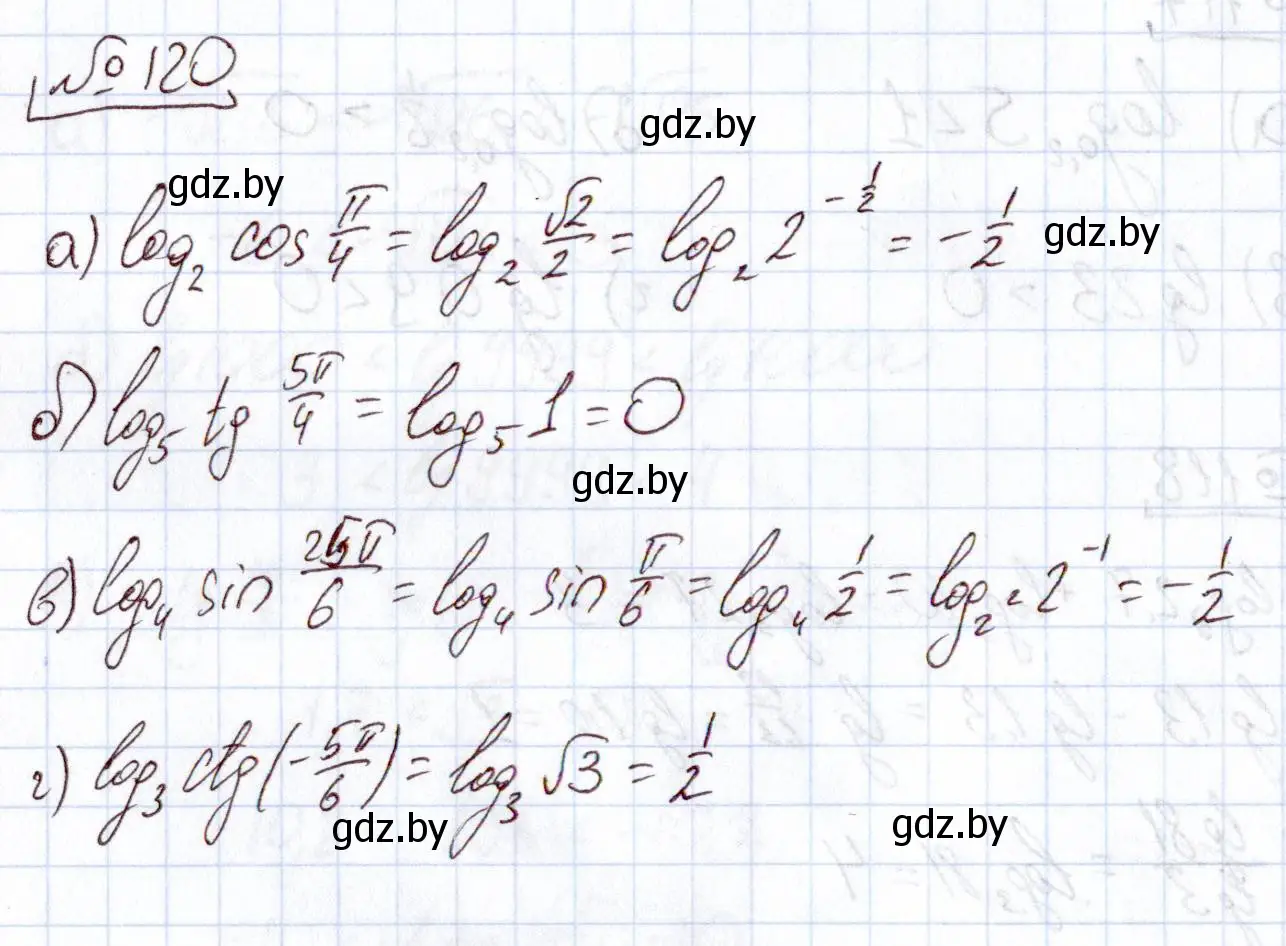 № 120
gdz.by
gdz.by
а) log₂ cos π/4 = log₂ √2/2 = log₂ 2^(-1/2) = -1/2
gdz.by
б) log₅ tg 5π/4 = log₅ 1 = 0
gdz.by
в) log₄ sin 25π/6 = log₄ sin π/6 = log₄ 1/2 = log₂² 2^(-1) = -1/2
г) log₃ ctg(-5π/6) = log₃ √3 = 1/2
gdz.by
gdz.by